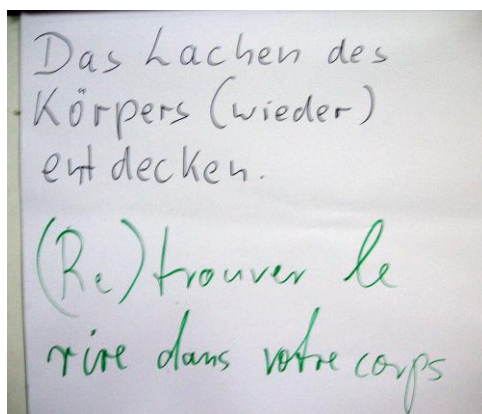 Das Lachen des
Körpers (wieder)
entdecken.
(Re)trouver le
rire dans votre corps